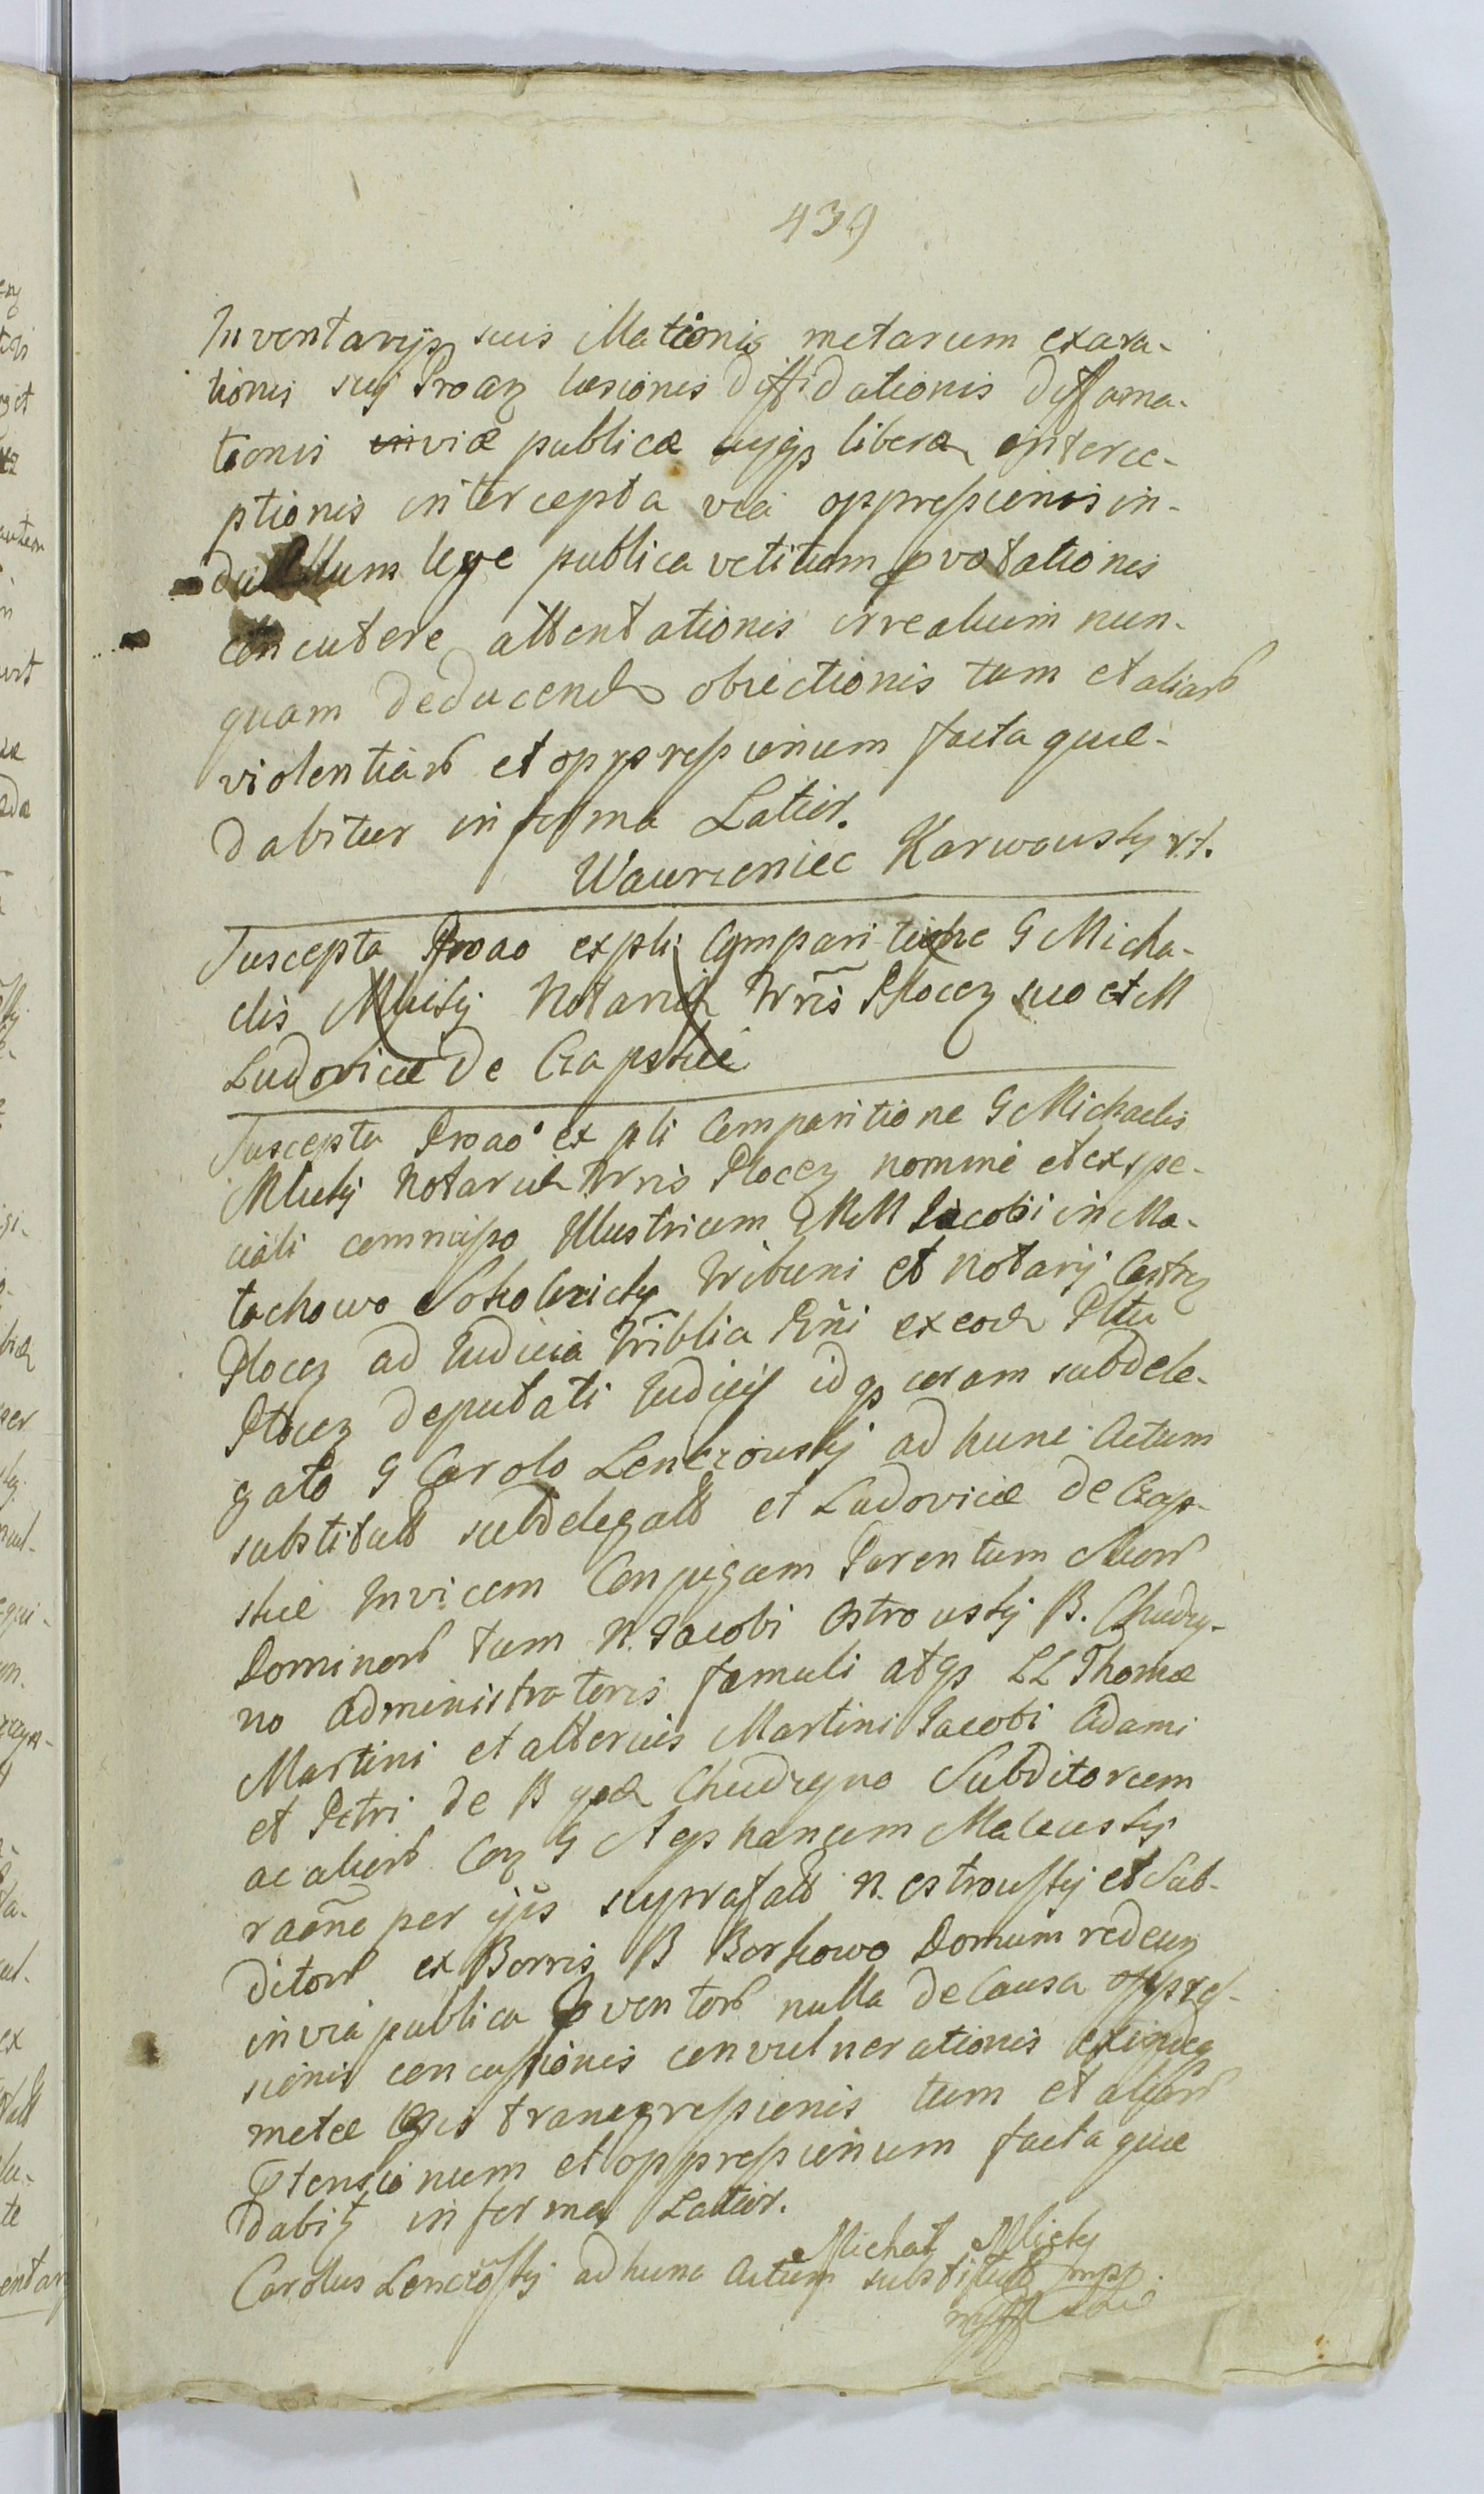 439
Inventarijs suis Mationis metarum exara-
tionis suij Proaz laesionis diffidationis diffama-
tionis viae publicae liberae interce-
ptionis intercepta via oppressionis in-
duellum lege publica vetitum provotationis
concutere attentationis irrealium nun-
quam deducend obiectionis tum et aliarb
violentiarb et oppressionum facta quae-
dabitur in forma Latior.
Wawrzeniec Karwowsky
Suscepta Proao expli Comparitione G Micha-
elis Mlicky Notarij Wris Plocez suo et M
Ludovicae de Czapskie
Suscepta Proao ex pli Comparitione G Michaelis
Mlicky Notarij Wris Plocez nomine et ex spe-
ciali commisso Illustrium MM Jacobi in Ma-
tachowo Sokolnicky Tribuni et Notarij Castrz
Plocez ad Judicia Triblia Rni ex eod Pltu
Plocez deputati Judicis idqz coram subdele-
gato G Carolo Lenczowsky ad hunc Actum
substitutt subdelegatt et Ludovicae de Czap-
skie Invicem Conjugum Parentum suorb
Dominorb tum N. Jacobi Ostrowsky B. Chudzy-
no administratoris famuli atqz LL Thomae
Martini et alterius Martini Jacobi Adami
et Petri de B Chudzyno Subditorum
ac aliorb Coz G Stephanum Malewsky
raone per ijs suprafatt N. Ostrowsky et Sub-
ditorb ex Borris B Borkowo Domum redeuz
in via publica Inventorb nulla de Causa oppres-
sionis concussionis convulnerationis exindeq
metae legis transgressionis tum et aliarb
Ptensionum et oppressionum facta quae
dabitz in forma Latior.
Michał Mlicky
Carolus Lenczowsky ad hunc Actum substitutt mpp